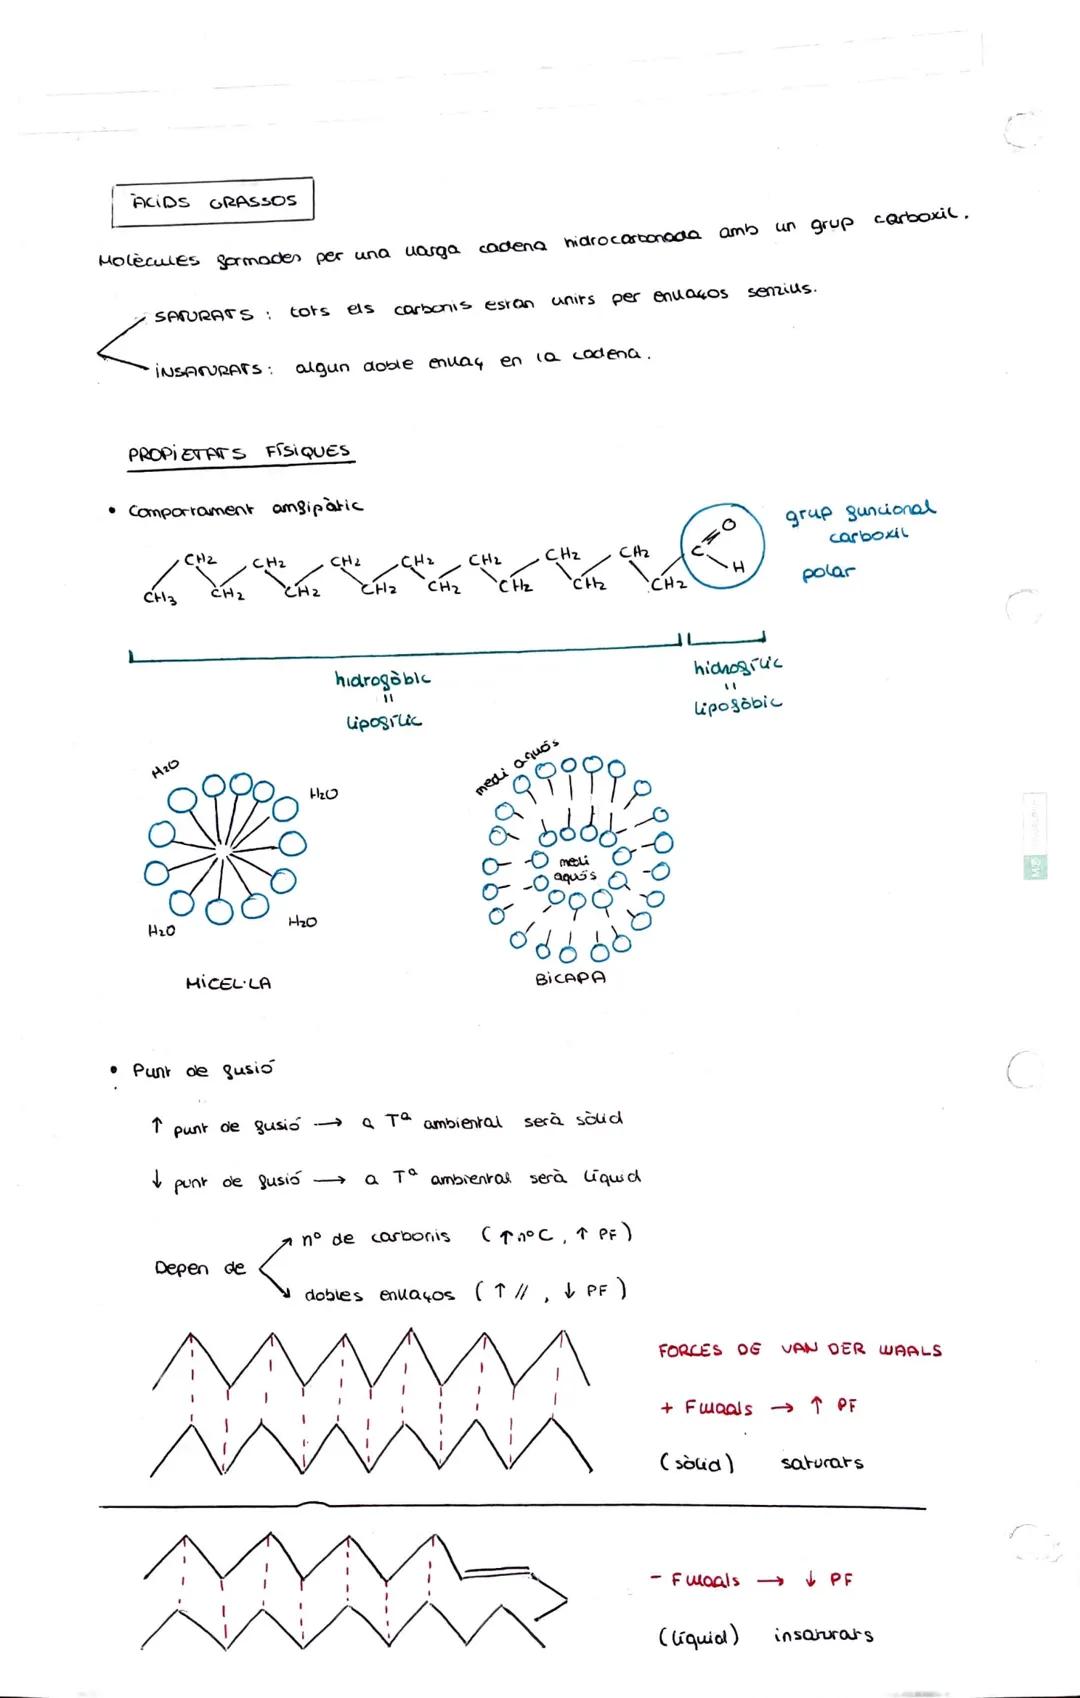 ÀCIDS GRASSOS
Molècules formades per una llarga cadena hidrocarbonada amb un grup carboxil.
SATURATS : tots els carbonis estan units per enllaços senzills.
INSATURATS : algun doble enllaç en la cadena.
PROPIETATS FÍSIQUES
• Comportament amfipàtic
grup funcional
carboxil
polar
CH2 CH2 CH2 CH2 CH2 CH2 CH2 C O
CH3 CH2 CH2 CH2 CH2 CH2 CH2 CH2 H
hidrofòbic
=
lipofílic
hidrofílic
=
lipofòbic
H2O
H2O
H2O
H2O
MICEL·LA
medi aquós
medi
aquós
BICAPA
• Punt de fusió
↑ punt de fusió → a Tª ambiental serà sòlid
↓ punt de fusió → a Tª ambiental serà líquid
Depen de
nº de carbonis ( ↑ nº C , ↑ PF )
dobles enllaços ( ↑ // , ↓ PF )
FORCES DE VAN DER WAALS
+ Fwaals → ↑ PF
(sòlid) saturats
- Fwaals → ↓ PF
(líquid) insaturats